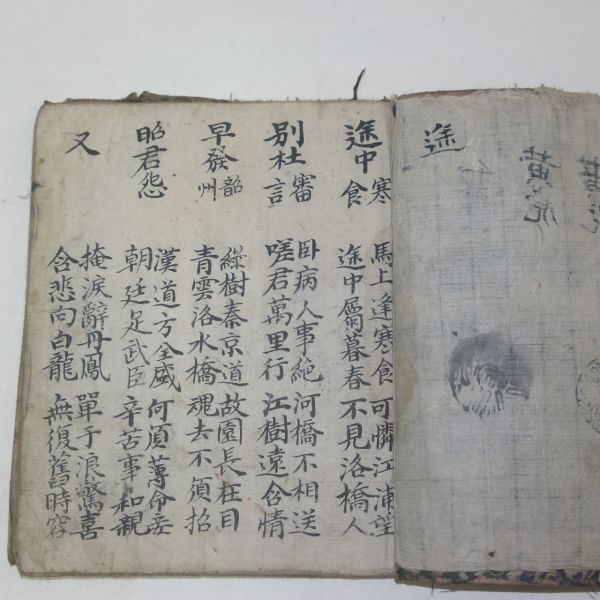 途
途中寒食
馬上逢寒食 可憐江浦望
途中屬暮春 不見洛橋人
別杜審言
卧病人事絶 河橋不相送
嗟君萬里行 江樹遠含情
早發韶州
綠樹秦京道 故園長在目
青雲洛水橋 魂去不須招
昭君怨
漢道方全盛 何須薄命妾
朝廷足武臣 辛苦事和親
又
掩淚辭丹鳳 單于浪驚喜
含悲向白龍 無復舊時容